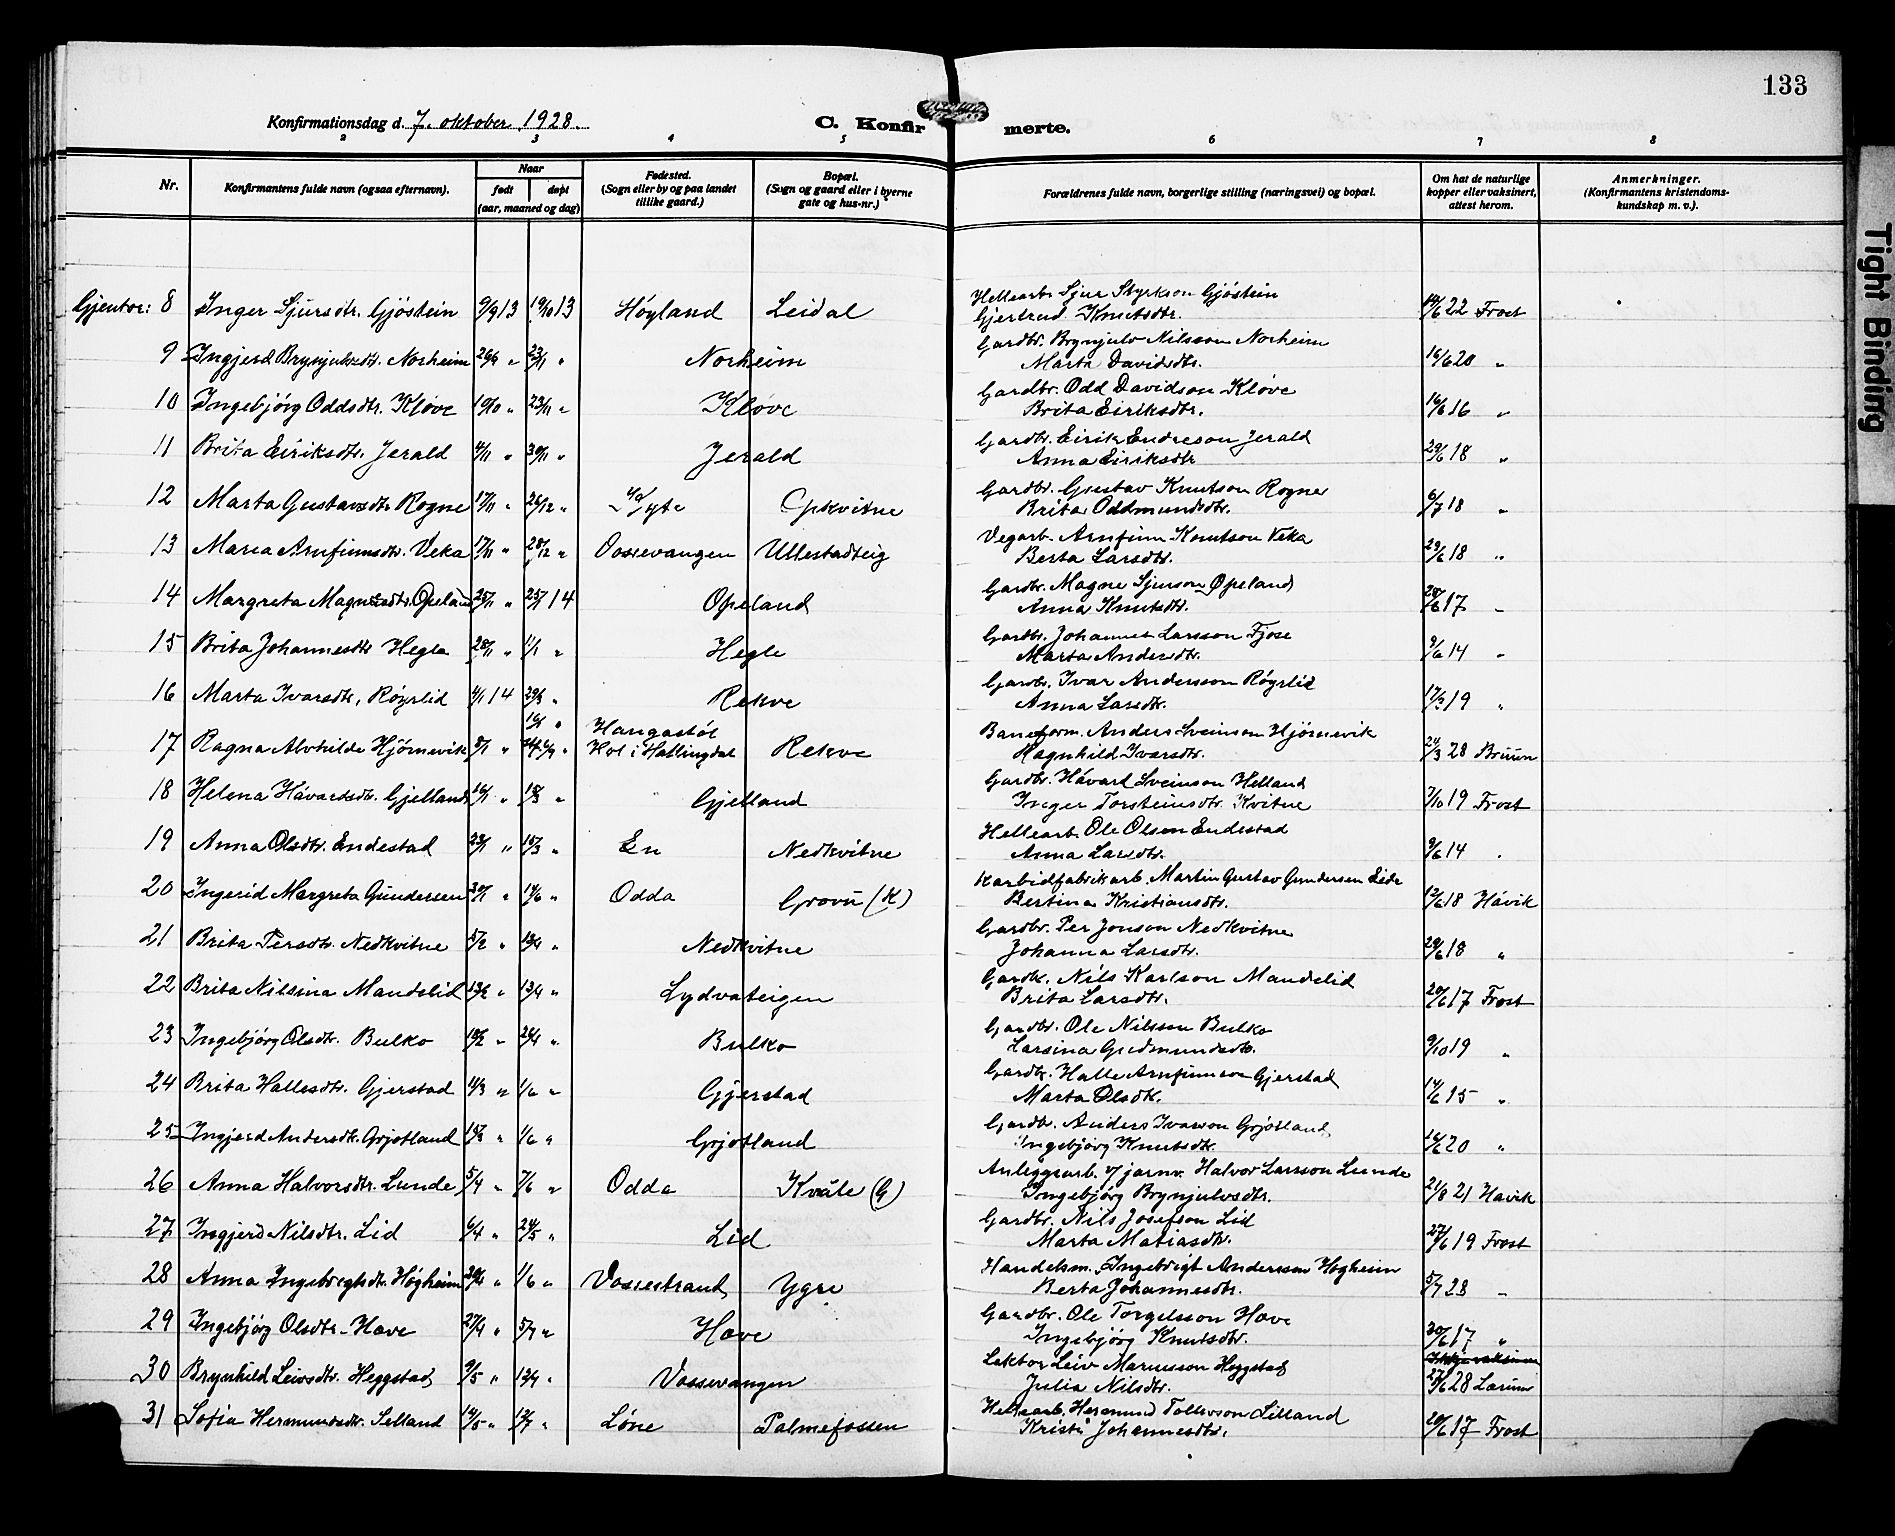 133
Konfirmationsdag d. 7. oktober 1928.
C. Konfir merte.
2 3 4 5 6 7 8
Nr.
Konfirmantens fulde navn (ogsaa efternavn).
Naar
født døpt
(aar, maaned og dag)
Fødested.
(Sogn eller by og paa landet
tillike gaard.)
Bopæl.
(Sogn og gaard eller i byerne
gate og hus-nr.)
Forældrenes fulde navn, borgerlige stilling (næringsvei) og bopæl.
Om hat de naturlige
kopper eller vaksinert,
attest herom.
Anmerkninger.
(Konfirmantens kristendoms-
kundskap m. v.).
Tight Binding
Gjentor: 8 Inger Sjursdtr. Gjøstein 9/9 13 19/10 13 Høyland Leidal Hellearb. Sjur Styrkson Gjøstein
Gjertrud Knutsdtr. 14/6 22 Frost
9 Ingjerd Brynjulvsdtr. Norheim 26/9 " 23/11 " Norheim Gardbr. Brynjulv Nilsson Norheim
Marta Davidsdtr. 16/6 20 "
10 Ingebjørg Oddsdtr. Kløve 19/10 " 23/11 " Kløve Gardbr. Odd Davidson Kløve
Brita Eiriksdtr. 16/6 16 "
11 Brita Eiriksdtr. Jerald 4/11 " 30/11 " Jerald Gardbr. Eirik Endreson Jerald
Anna Eiriksdtr 29/6 18 "
12 Marta Gustavsdtr. Rogne 17/11 " 26/12 " Opkvitne Gardbr. Gustav Knutson Rogne
Brita Oddmundsdtr. 6/7 18 "
13 Maria Arnfinnsdtr. Veka 17/11 " 28/12 " Vossevangen Ullestadteig Vegarb. Arnfinn Knutson Veka
Berta Larsdtr. 29/6 18 "
14 Margreta Magnesdtr. Opeland 25/11 " 25/1 14 Opeland Gardbr. Magne Sjurson Opeland
Anna Knutsdtr. 28/6 17 "
15 Brita Johannesdtr Hegle 28/11 " 1/1 " Hegle Gardbr. Johannes Larsson Fjose
Marta Andersdtr. 9/6 14 "
16 Marta Ivarsdtr. Røyrlid 4/1 14 29/3 " Rekve Gardbr. Ivar Andersson Røyrlid
Anna Larsdtr. 17/7 19 "
17 Ragna Alvhilde Hjørnevik 8/1 " Haugastøl
Hol i Hallingdal Rekve Baneform. Anders Sveinson Hjørnevik
Ragnhild Ivarsdtr. 24/3 28 Bruun
18 Helena Håvardsdtr. Gjelland 16/1 " 15/3 " Gjelland Gardbr. Håvard Sveinson Helland
Inger Torsteinsdtr. Kvitne 7/10 19 Frost
19 Anna Olsdtr. Endestad 23/1 " 15/3 " En Nedkvitne Hellearb. Ole Olson Endestad
Anna Larsdtr. 9/6 14 "
20 Ingerid Margreta Gundersen 30/1 " 14/6 " Odda Grovu (K) Karbidfabrikarb. Martin Gustav Gundersen Eide
Bertina Kristiansdtr. 12/6 18 Håvik
21 Brita Persdtr. Nedkvitne 5/2 " 13/4 " Nedkvitne Gardbr. Per Jonson Nedkvitne
Johanna Larsdtr. 29/6 18 "
22 Brita Nilsina Mandelid 13/2 " 13/4 " Lydvateigen Gardbr. Nils Karlson Mandelid
Brita Larsdtr. 20/6 17 Frost
23 Ingebjørg Olsdtr. Bulko 18/2 " 26/4 " Bulko Gardbr. Ole Nilsson Bulko
Larsina Gudmundsdtr. 9/10 19 "
24 Brita Hallesdtr. Gjerstad 11/3 " 1/6 " Gjerstad Gardbr. Halle Arnfinnson Gjerstad
Marta Olsdtr. 14/6 15 "
25 Ingjerd Andersdtr. Grjotland 14/3 " 1/6 " Grjotland Gardbr. Anders Ivarson Grjotland
Ingebjørg Knutsdtr. 16/6 20 "
26 Anna Halvorsdtr. Lunde 5/4 " 7/6 " Odda Kvåle (G) Anleggsarb. v/ jarnv. Halvor Larsson Lunde
Ingebjørg Brynjulvsdtr. 21/8 21 Havik
27 Ingjerd Nilsdtr. Lid 6/4 " 24/5 " Lid Gardbr. Nils Josefson Lid
Marta Matiasdtr. 27/6 19 Frost
28 Anna Ingebrigtsdtr. Høgheim 20/4 " 1/6 " Vossestrand Ygre Handelsm. Ingebrigt Andersson Høgheim
Berta Johannesdtr. 5/7 28 "
29 Ingebjørg Olsdtr. Hove 27/4 " 5/7 " Hove Gardbr. Ole Torgelsson Hove
Ingebjørg Knutsdtr. 30/6 17 "
30 Brynhild Leivsdtr. Heggstad 9/5 " 12/7 " Vossevangen Lektor Leiv Mariusson Heggstad
Julia Nilsdtr. 27/6 28 Larum
31 Sofia Hermundsdtr. Selland 14/5 " 12/7 " Løne Palmefossen Hellearb. Hermund Tollevson Selland
Kristi Johannesdtr. 20/6 17 Frost